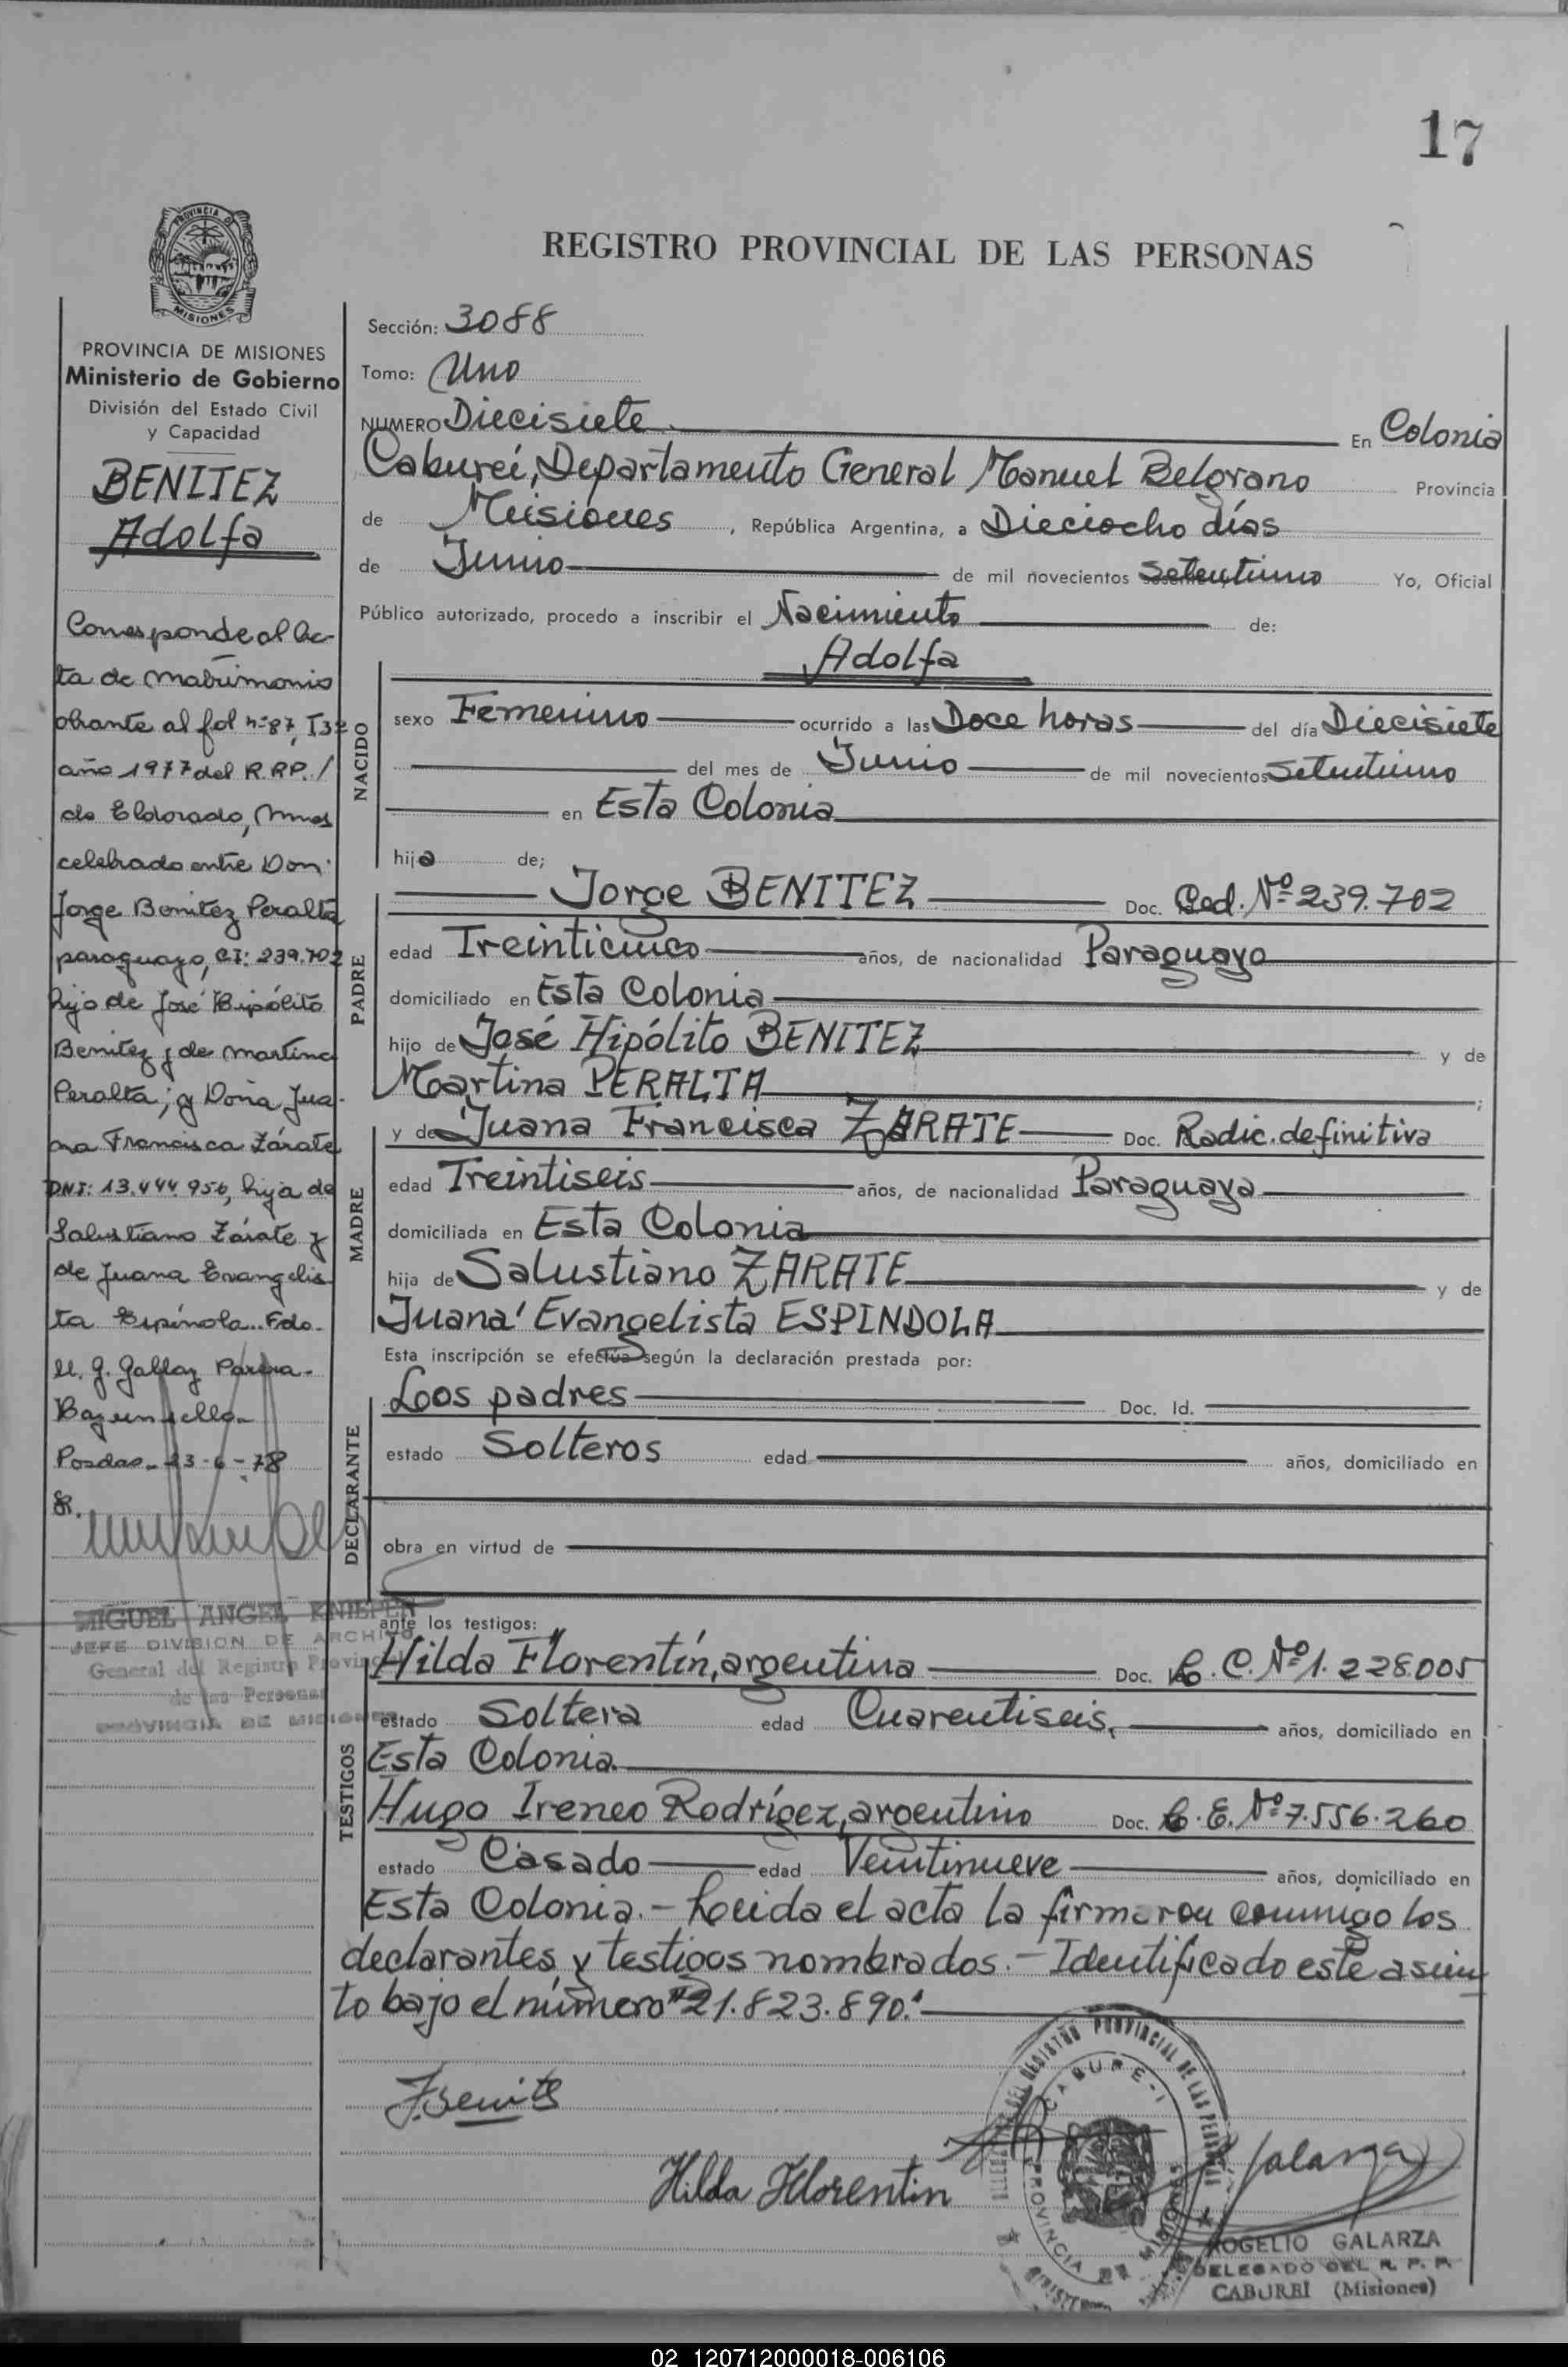 17
REGISTRO PROVINCIAL DE LAS PERSONAS
PROVINCIA DE
MISIONES
PROVINCIA DE MISIONES
Ministerio de Gobierno
División del Estado Civil
y Capacidad
BENITEZ
Adolfa
Corresponde al Ac-
ta de matrimonio
obrante al fol nº 87, T3º
año 1977 del R.R.P. /
de Eldorado, Mnes
celebrado entre Don
Jorge Benitez Peralta
paraguayo, CI: 239.702
hijo de José Hipólito
Benitez y de Martina
Peralta; y Doña Jua-
na Francisca Zárate
DNI: 13.444.956, hija de
Salustiano Zárate y
de Juana Evangelis
ta Espínola.. Fdo.
Posdas. 23-6-78
MIGUEL ANGEL KNIEPER
JEFE DIVISION DE ARCHIVO
General del Registro Provincial
de las Personas
PROVINCIA DE MISIONES
Sección: 3088
Tomo: Uno
NUMERO Diecisiete En Colonia
Cabureí, Departamento General Manuel Belgrano Provincia
de Misiones, República Argentina, a Dieciocho días
de Junio de mil novecientos Setentiuno Yo, Oficial
Público autorizado, procedo a inscribir el Nacimiento de:
Adolfa
NACIDO
sexo Femenino ocurrido a las Doce horas del día Diecisiete
del mes de Junio de mil novecientos Setentiuno
en Esta Colonia
hija de;
PADRE
Jorge BENITEZ Doc. Ced. Nº 239.702
edad Treinticinco años, de nacionalidad Paraguayo
domiciliado en Esta Colonia
hijo de José Hipólito BENITEZ y de
Martina PERALTA ;
MADRE
y de Juana Francisca ZARATE Doc. Radic. definitiva
edad Treintiseis años, de nacionalidad Paraguaya
domiciliada en Esta Colonia
hija de Salustiano ZARATE y de
Juana Evangelista ESPINDOLA
Esta inscripción se efectúa según la declaración prestada por:
DECLARANTE
Loos padres Doc. Id.
estado Solteros edad años, domiciliado en
obra en virtud de
ante los testigos:
TESTIGOS
Hilda Florentín, argentina Doc. L.C. Nº 1.228.005
estado Soltera edad Cuarentiseis, años, domiciliado en
Esta Colonia.
Hugo Ireneo Rodrígez, argentino Doc. L.E. Nº 7.556.260
estado Casado edad Veintinueve años, domiciliado en
Esta Colonia. - Leeida el acta la firmaron conmigo los
declarantes y testigos nombrados. - Identificado este asun
to bajo el número "21.823.890."
JBenits
Hilda Florentin
Galarza
DEL REGISTRO PROVINCIAL DE LAS PERSONAS
CABURE-I
PROVINCIA DE MISIONES
ROGELIO GALARZA
DELEGADO DEL R. P. P.
CABUREI (Misiones)
02_120712000018-006106